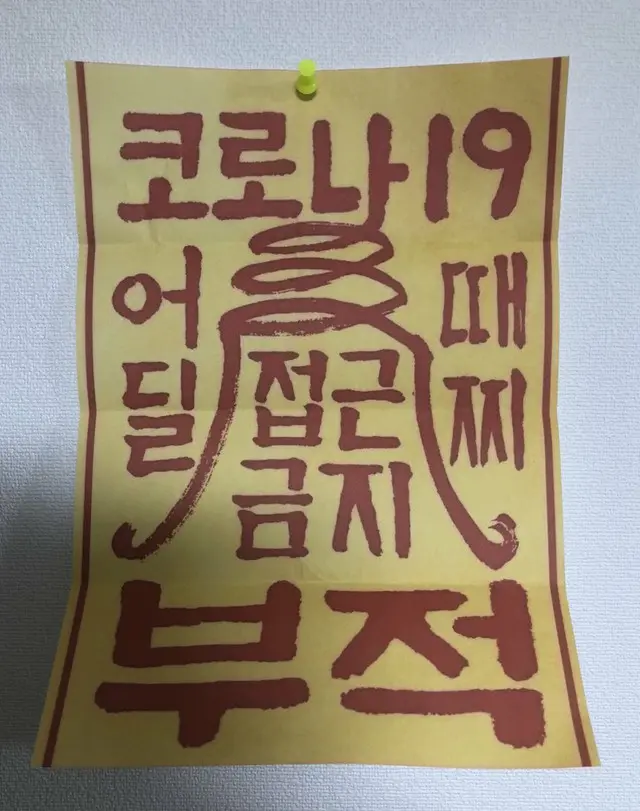 코로나19
어딜
접근
금지
때찌
부적